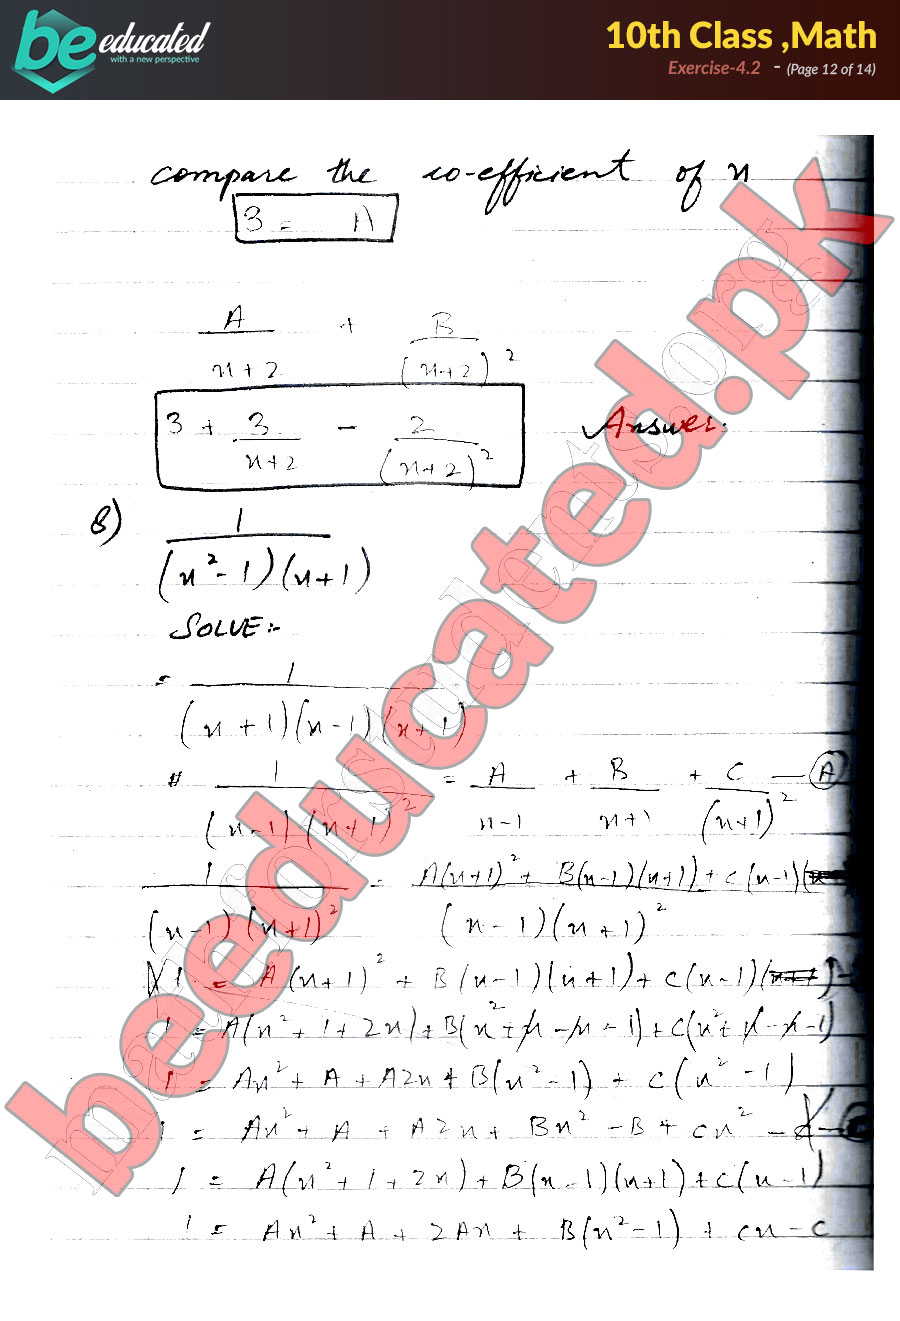 be educated
with a new perspective
10th Class ,Math
Exercise-4.2 - (Page 12 of 14)
compare the co-efficient of x
3 = A
A/(x+2) + B/(x+2)²
3 + 3/(x+2) - 2/(x+2)² Answer.
8) 1/(x²-1)(x+1)
SOLVE:-
= 1/(x+1)(x-1)(x+1)
1/(x-1)(x+1)² = A/(x-1) + B/(x+1) + C/(x+1)² — (A)
1/(x-1)(x+1)² = A(x+1)² + B(x-1)(x+1) + C(x-1)/(x-1)(x+1)²
1 = A(x+1)² + B(x-1)(x+1) + C(x-1)
1 = A(x²+1+2x) + B(x²+x-x-1) + C(x²+x-x-1)
1 = Ax² + A + A2x + B(x²-1) + C(x²-1)
1 = Ax² + A + A2x + Bx² - B + Cx² -
1 = A(x²+1+2x) + B(x-1)(x+1) + C(x-1)
1 = Ax² + A + 2Ax + B(x²-1) + Cx - C
beeducated.pk